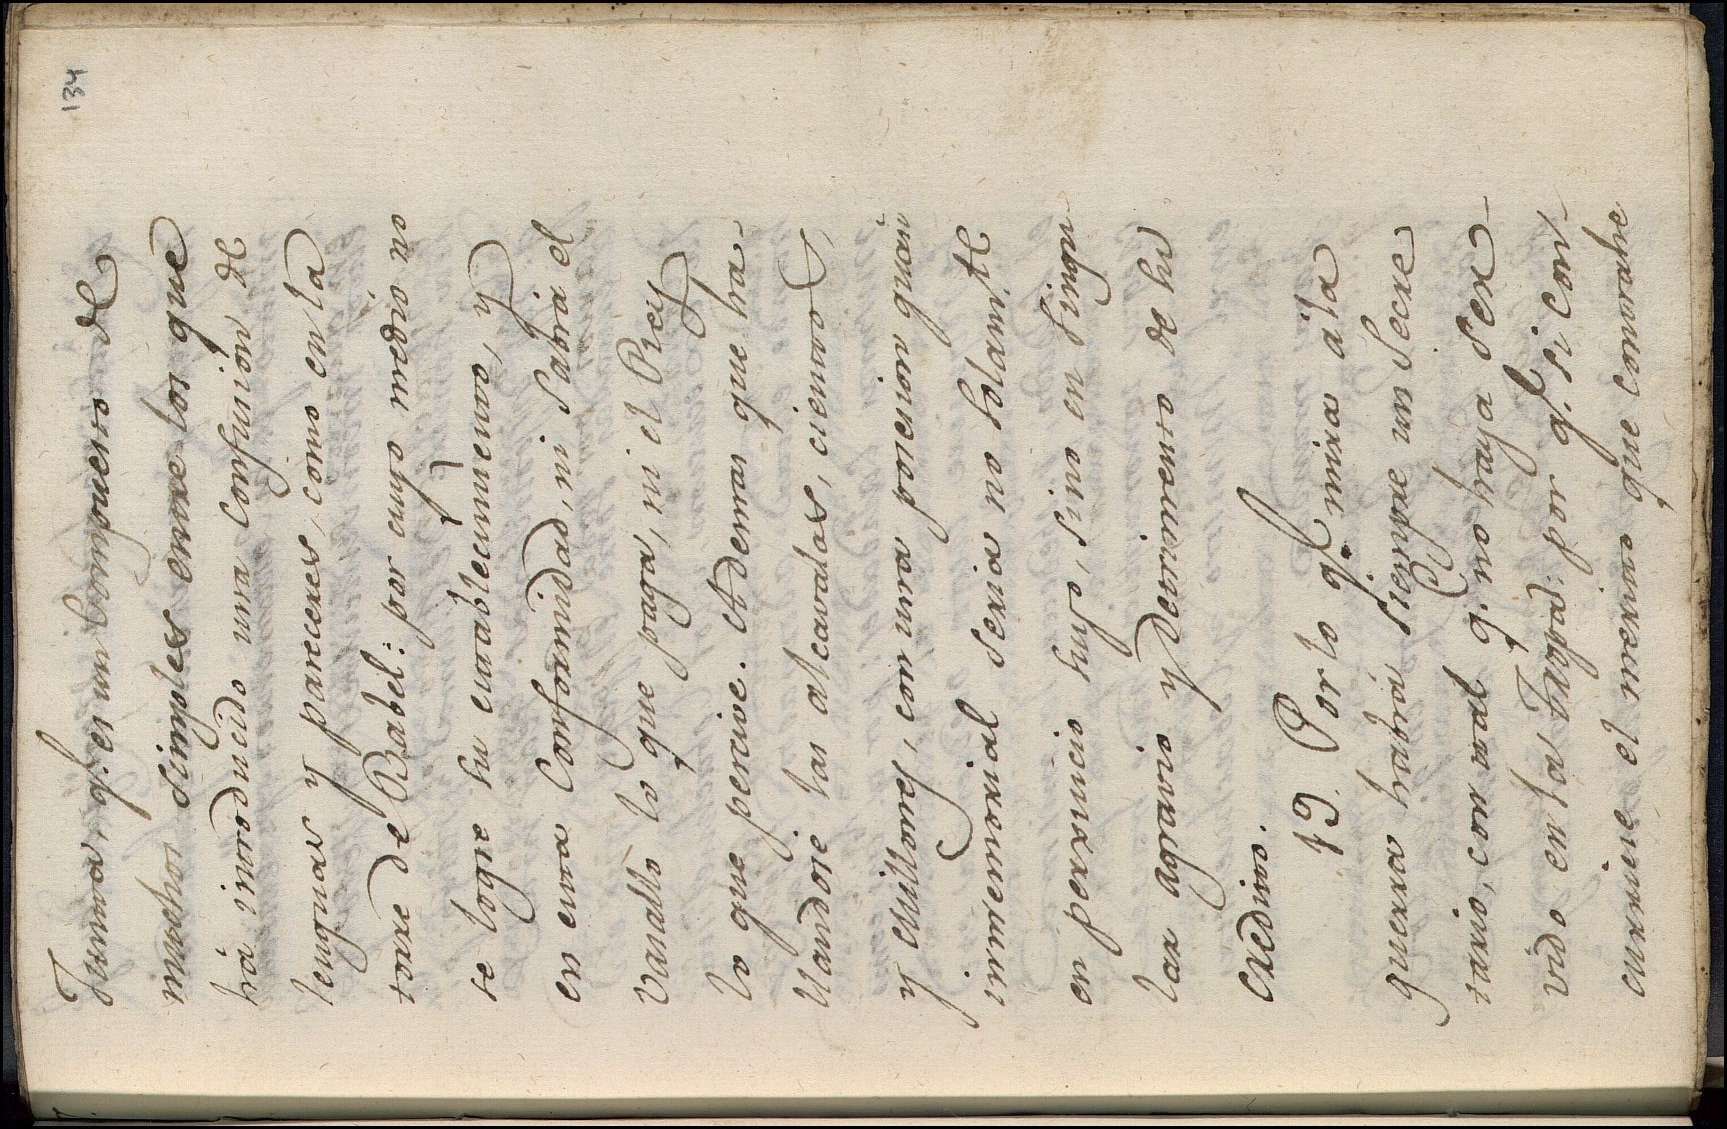 134
Junta, q.e es un Compuesto de
muchos simples entre los que
há introducido una confusion de
lenguas y pareceres, como en la
torre de Babel: por cuyo medio no
se logre su establecimiento, y
en esta Conformidad, ni Sabrá el
Vasallo lo que paga, ni el Rey
lo que percive. Ademas que ha-
llandose las alcavalas, cientos,
y millones, con una posesion quasi
immemorial seria no solam.te
en perxuicio suyo, sino en singu-
lar agravio y detrimento de su
credito.
19. Por lo q.e mira á la
quexa habrá siempre un Secre
tario, con tal q. no haya ser-
vido en la Fragad: por q.e si con-
curriese el mesmo que comorahe